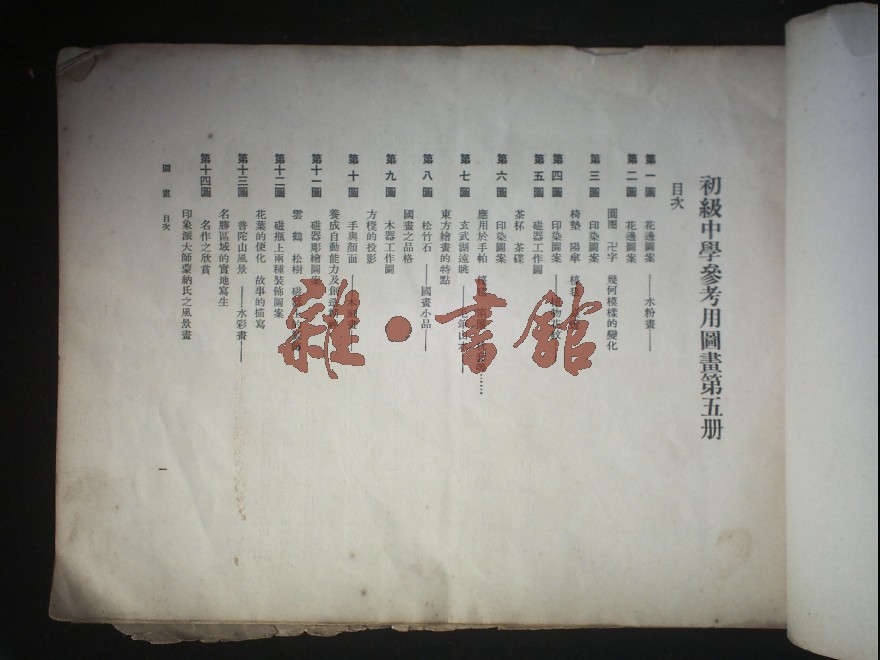 初級中學參考用圖畫第五册
目次
第一圖 花邊圖案 ——水粉畫——
第二圖 花邊圖案
圓圈 卍字 幾何模樣的變化
第三圖 印染圖案
椅墊 陽傘
第四圖 印染圖案——
第五圖 磁器工作圖
茶杯 茶碟
第六圖 印染圖案
應用於手帕
第七圖 玄武湖遠眺——
東方繪畫的特點
第八圖 松竹石 ——國畫小品——
國畫之品格
第九圖 木器工作圖
方櫈的投影
第十圖 手與顏面
養成自動能力及創造
第十一圖 磁器彫繪圖案
雲 鶴 松樹
第十二圖 磁瓶上兩種裝飾圖案
花葉的便化 故事的描寫
第十三圖 普陀山風景 ——水彩畫——
名勝區域的實地寫生
第十四圖 名作之欣賞
印象派大師蒙納氏之風景畫
圖畫 目次
一
雜·書館